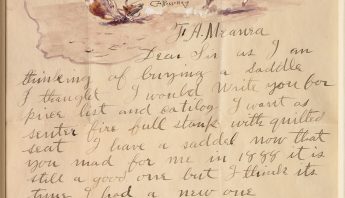 F. A. Meanea
Dear Sir as I am
thinking of buying a saddle
I thought I would write you for
price list and catilog I want a
senter fire full stamp with quilted
seat I have a saddel now that
you mad for me in 1888 it is
still a good one but I think its
time I had a new one